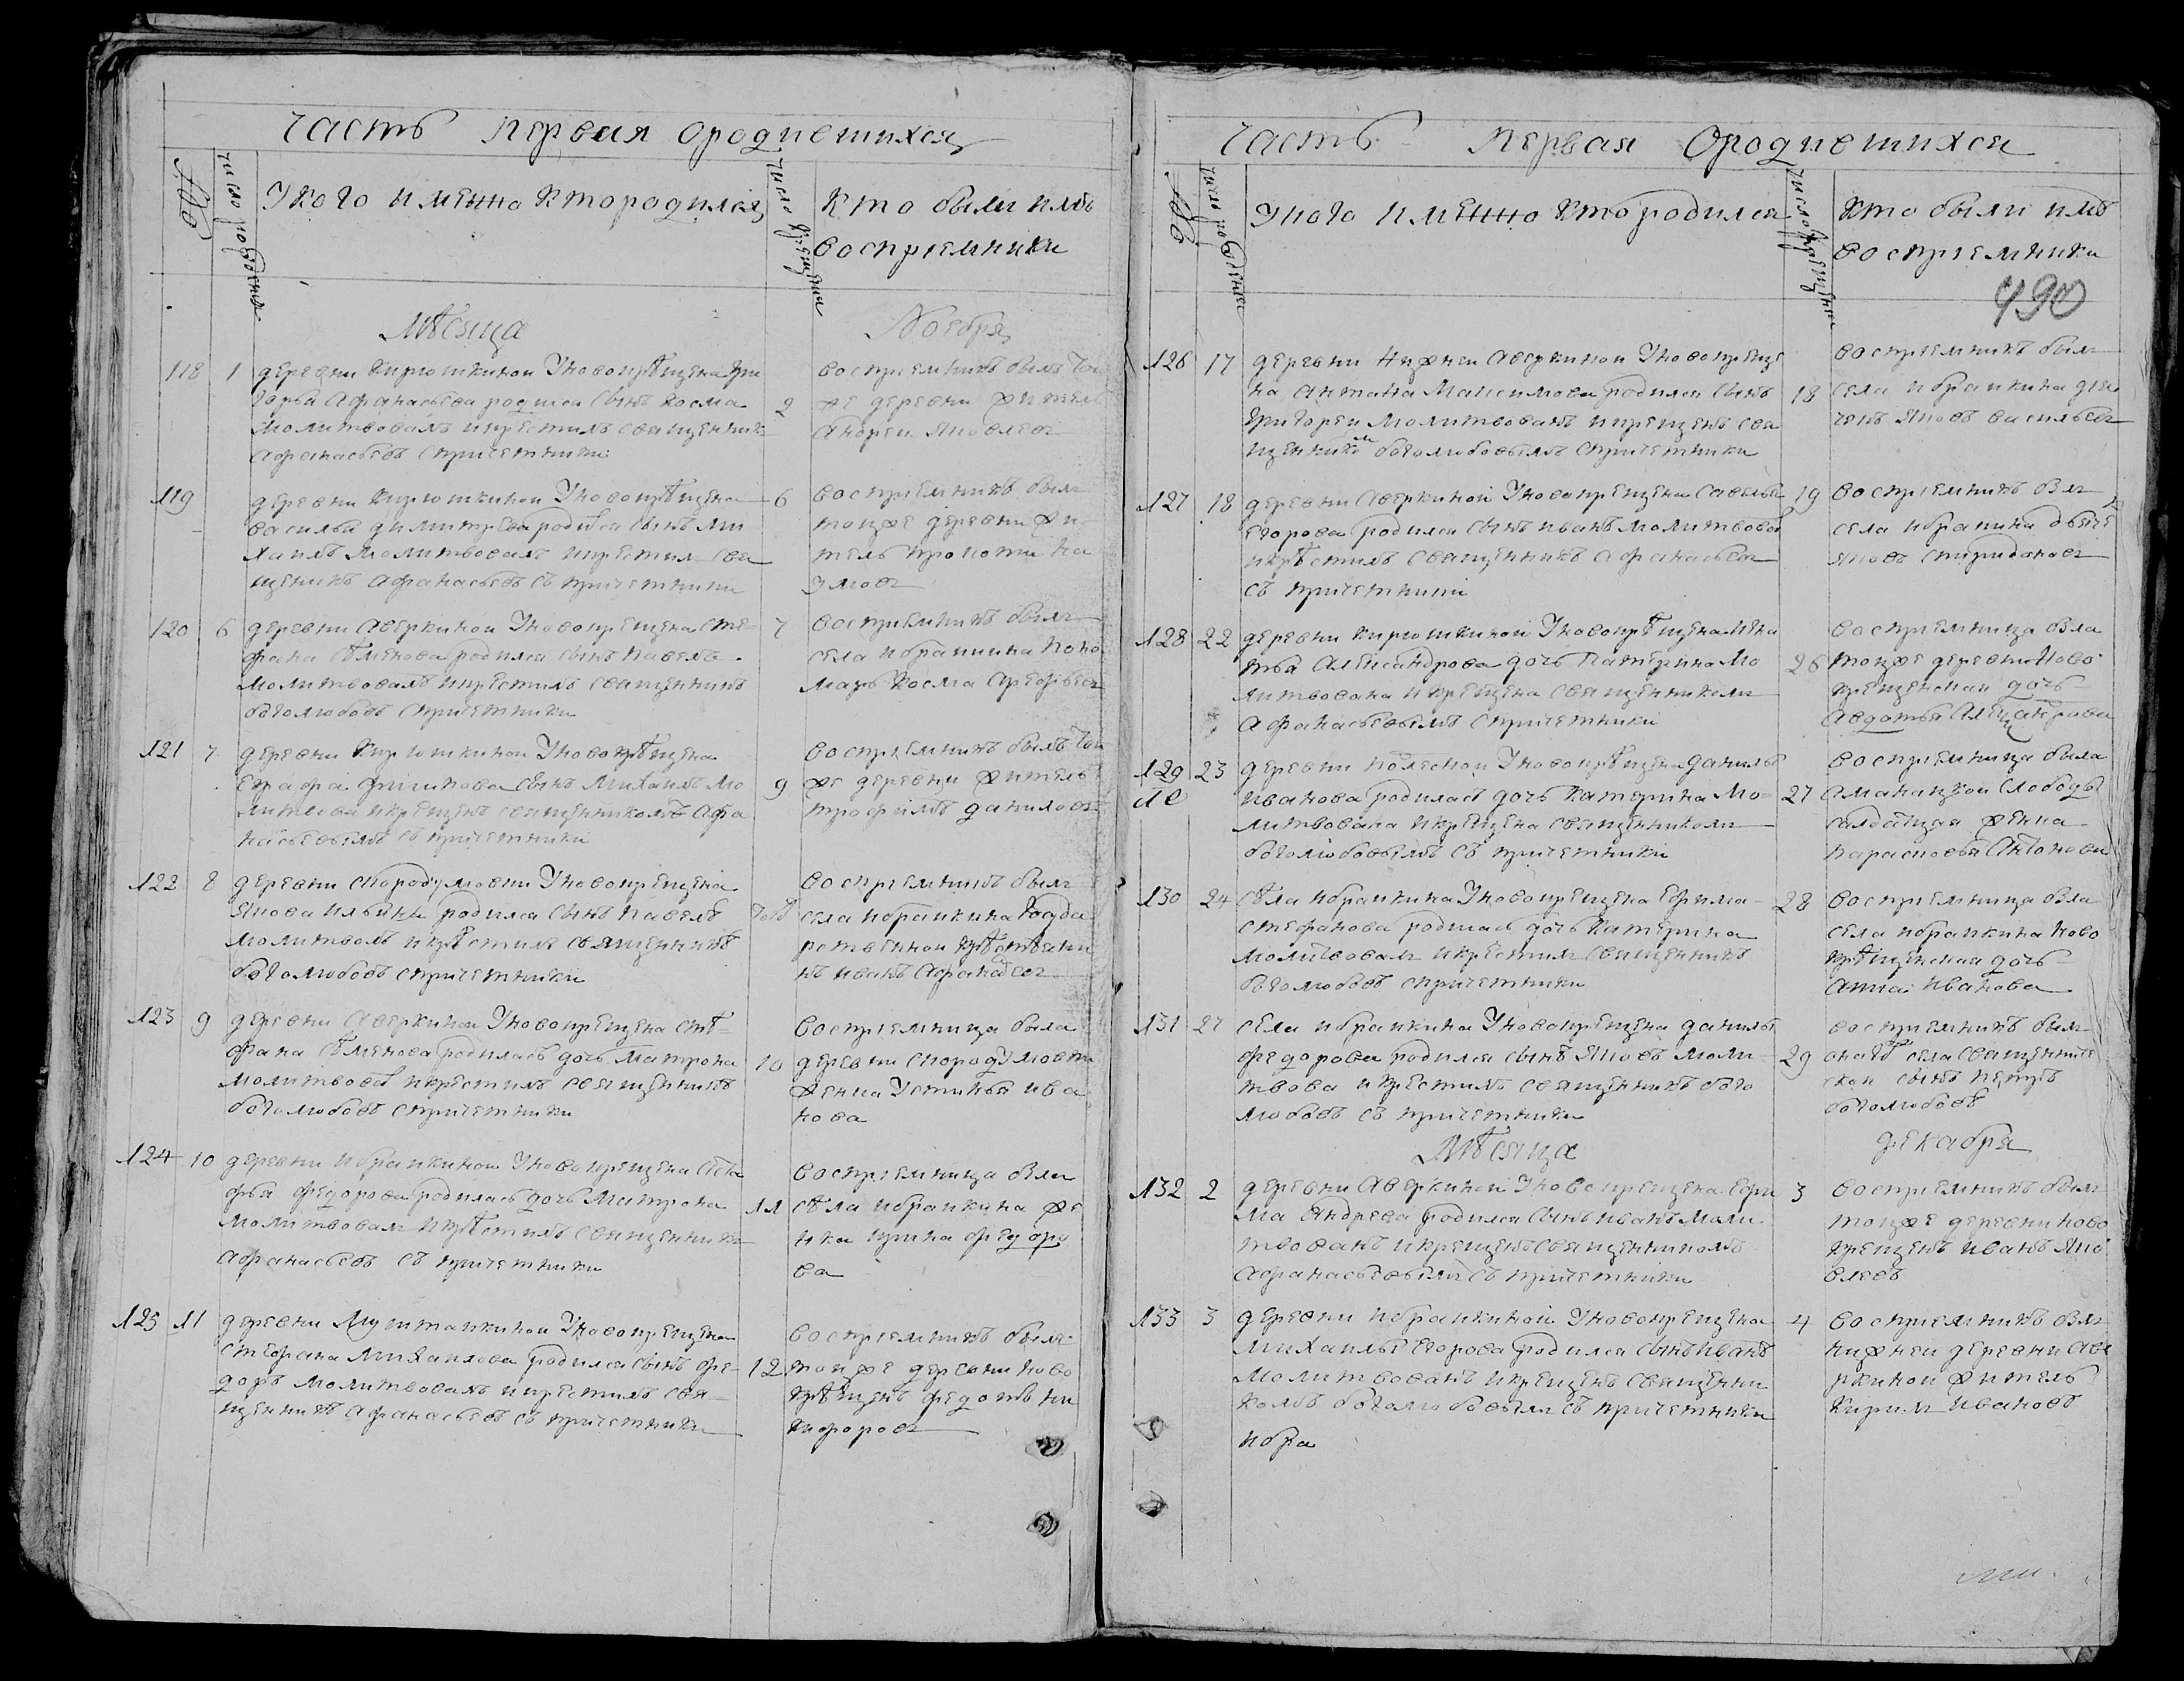 часть первая ородившихся
№
число рождения
Укого имянно кто родился
число крещения
кто были имъ
восприемники
мѣсяца
Ноября
118 1 деревни Кирюшкиной Уновокрѣщена Гри
горья Афанасьева родился сынъ косма
молитвовалъ икрестилъ священникъ
Афанасьевъ спричетники
2
восприемникъ былъ той
же деревни житель
Андреи Яковлевъ
119
деревни Кирюшкиной Уновокрѣщена
василья димитрева родился сынъ ми
хаилъ молитвовалъ икрестил свя
щеникъ Афанасьевъ съ причетники
6
восприемникъ былъ
тоиже деревни жи
тель
120 6 деревни Аверкиной Уновокрещена сте
фана сѣменова родился сынъ павелъ
молитвовалъ икрестилъ священникъ
боголюбовъ спричетники
7
восприемникъ былъ
села ибраикина поно
марь косма Арефьевъ
121 7 деревни Кирюшкиной Уновокрѣщена
филипова сынъ михаилъ мо
икрещенъ священникомъ Афа
насьевымъ съ причетники
9
восприемникъ былъ той
же деревни житель
трофимъ даниловъ
122 8 деревни скородумовки Уновокрещена
Якова ильина родился сынъ павелъ
икрѣстилъ священникъ
боголюбовъ спричетники
восприемникъ былъ
села ибраикина госуда
рственной крѣстьяни
нъ иванъ
123 9 деревни Аверкиной Уновокрещена стѣ
фана сѣменова родилась дочь матрона
икрестилъ священникъ
боголюбовъ спричетники
10
восприемница была
деревни скородумовки
женка Устинья ива
нова
124 10 деревни ибраикиной Уновокрещена Аста
фья федорова родилась дочь матрона
молитвовалъ икрѣстилъ священникъ
Афанасьевъ съ причетники
11
восприемница была
сѣла ибраикина же
нка ирина федоро
ва
125 11 деревни Мушташкиной Уновокрещена
стефана михаилова родился сынъ фе
доръ молитвовалъ икрестилъ свя
щенникъ Афанасьевъ съ причетники
12
восприемникъ былъ
тоиже деревни ново
крѣщенъ федотъ ни
кифоровъ
часть первая ородившихся
№
число рождения
Укого имянно кто родился
число крещения
кто были имъ
восприемники
490
126 17 деревни нижнеи Аверкиной Уновокреще
на Антона Максимова родился сынъ
григореи молитвованъ икрещенъ свя
щенникомъ боголюбовымъ спричетники
18
восприемникъ былъ
села ибраикина дья
Яковъ васильевъ
127 18 деревни Аверкиной Уновокрещена савелья
Егорова родился сынъ иванъ молитвовал
икрѣстилъ священникъ Афанасьевъ
съ причетники
19
восприемникъ был
села ибраикина
Яковъ спиридоновъ
128 22 деревни Кирюшкиной Уновокрѣщена игна
тья Александрова дочь катерина мо
литвована икрещена священникомъ
Афанасьевымъ спричетники
26
восприемница была
тоиже деревни ново
крещенская дочь
Авдотья Александрова
129 23 деревни полеской Уновокрѣщена данилы
иванова родилась дочь катерина мо
литвована икрещена священникомъ
боголюбовымъ съ причетники
27
восприемница была
слободы
салдацкая женка
парасковья Антонова
130 24 сѣла ибраикина Уновокрещена Ефима
стефанова родилась дочь катерина
молитвовалъ икрестилъ священникъ
боголюбовъ спричетники
28
восприемница была
села ибраикина ново
крѣщенская дочь
Анна иванова
131 27 села ибраикина Уновокрещена данилы
федорова родился сынъ Яковъ моли
твова икрестилъ священникъ бого
любовъ съ причетники
29
восприемникъ былъ
села священниче
скои сынъ петръ
боголюбовъ
мѣсяца
декабря
132 2 деревни Аверкиной Уновокрещена Ефи
ма Андрева родился сынъ иванъ моли
твованъ икрещенъ священникомъ
Афанасьевымъ съ причетники
3
восприемникъ былъ
тоиже деревни ново
крещенъ иванъ Яко
влевъ
133 3 деревни ибраикиной Уновокрещена
михаилы Егорова родился сынъ иванъ
молитвованъ икрещенъ священни
комъ боголюбовымъ съ причетники
4
восприемникъ был
нижнеи деревни Аве
ркиной житель
кирилъ ивановъ
ибра